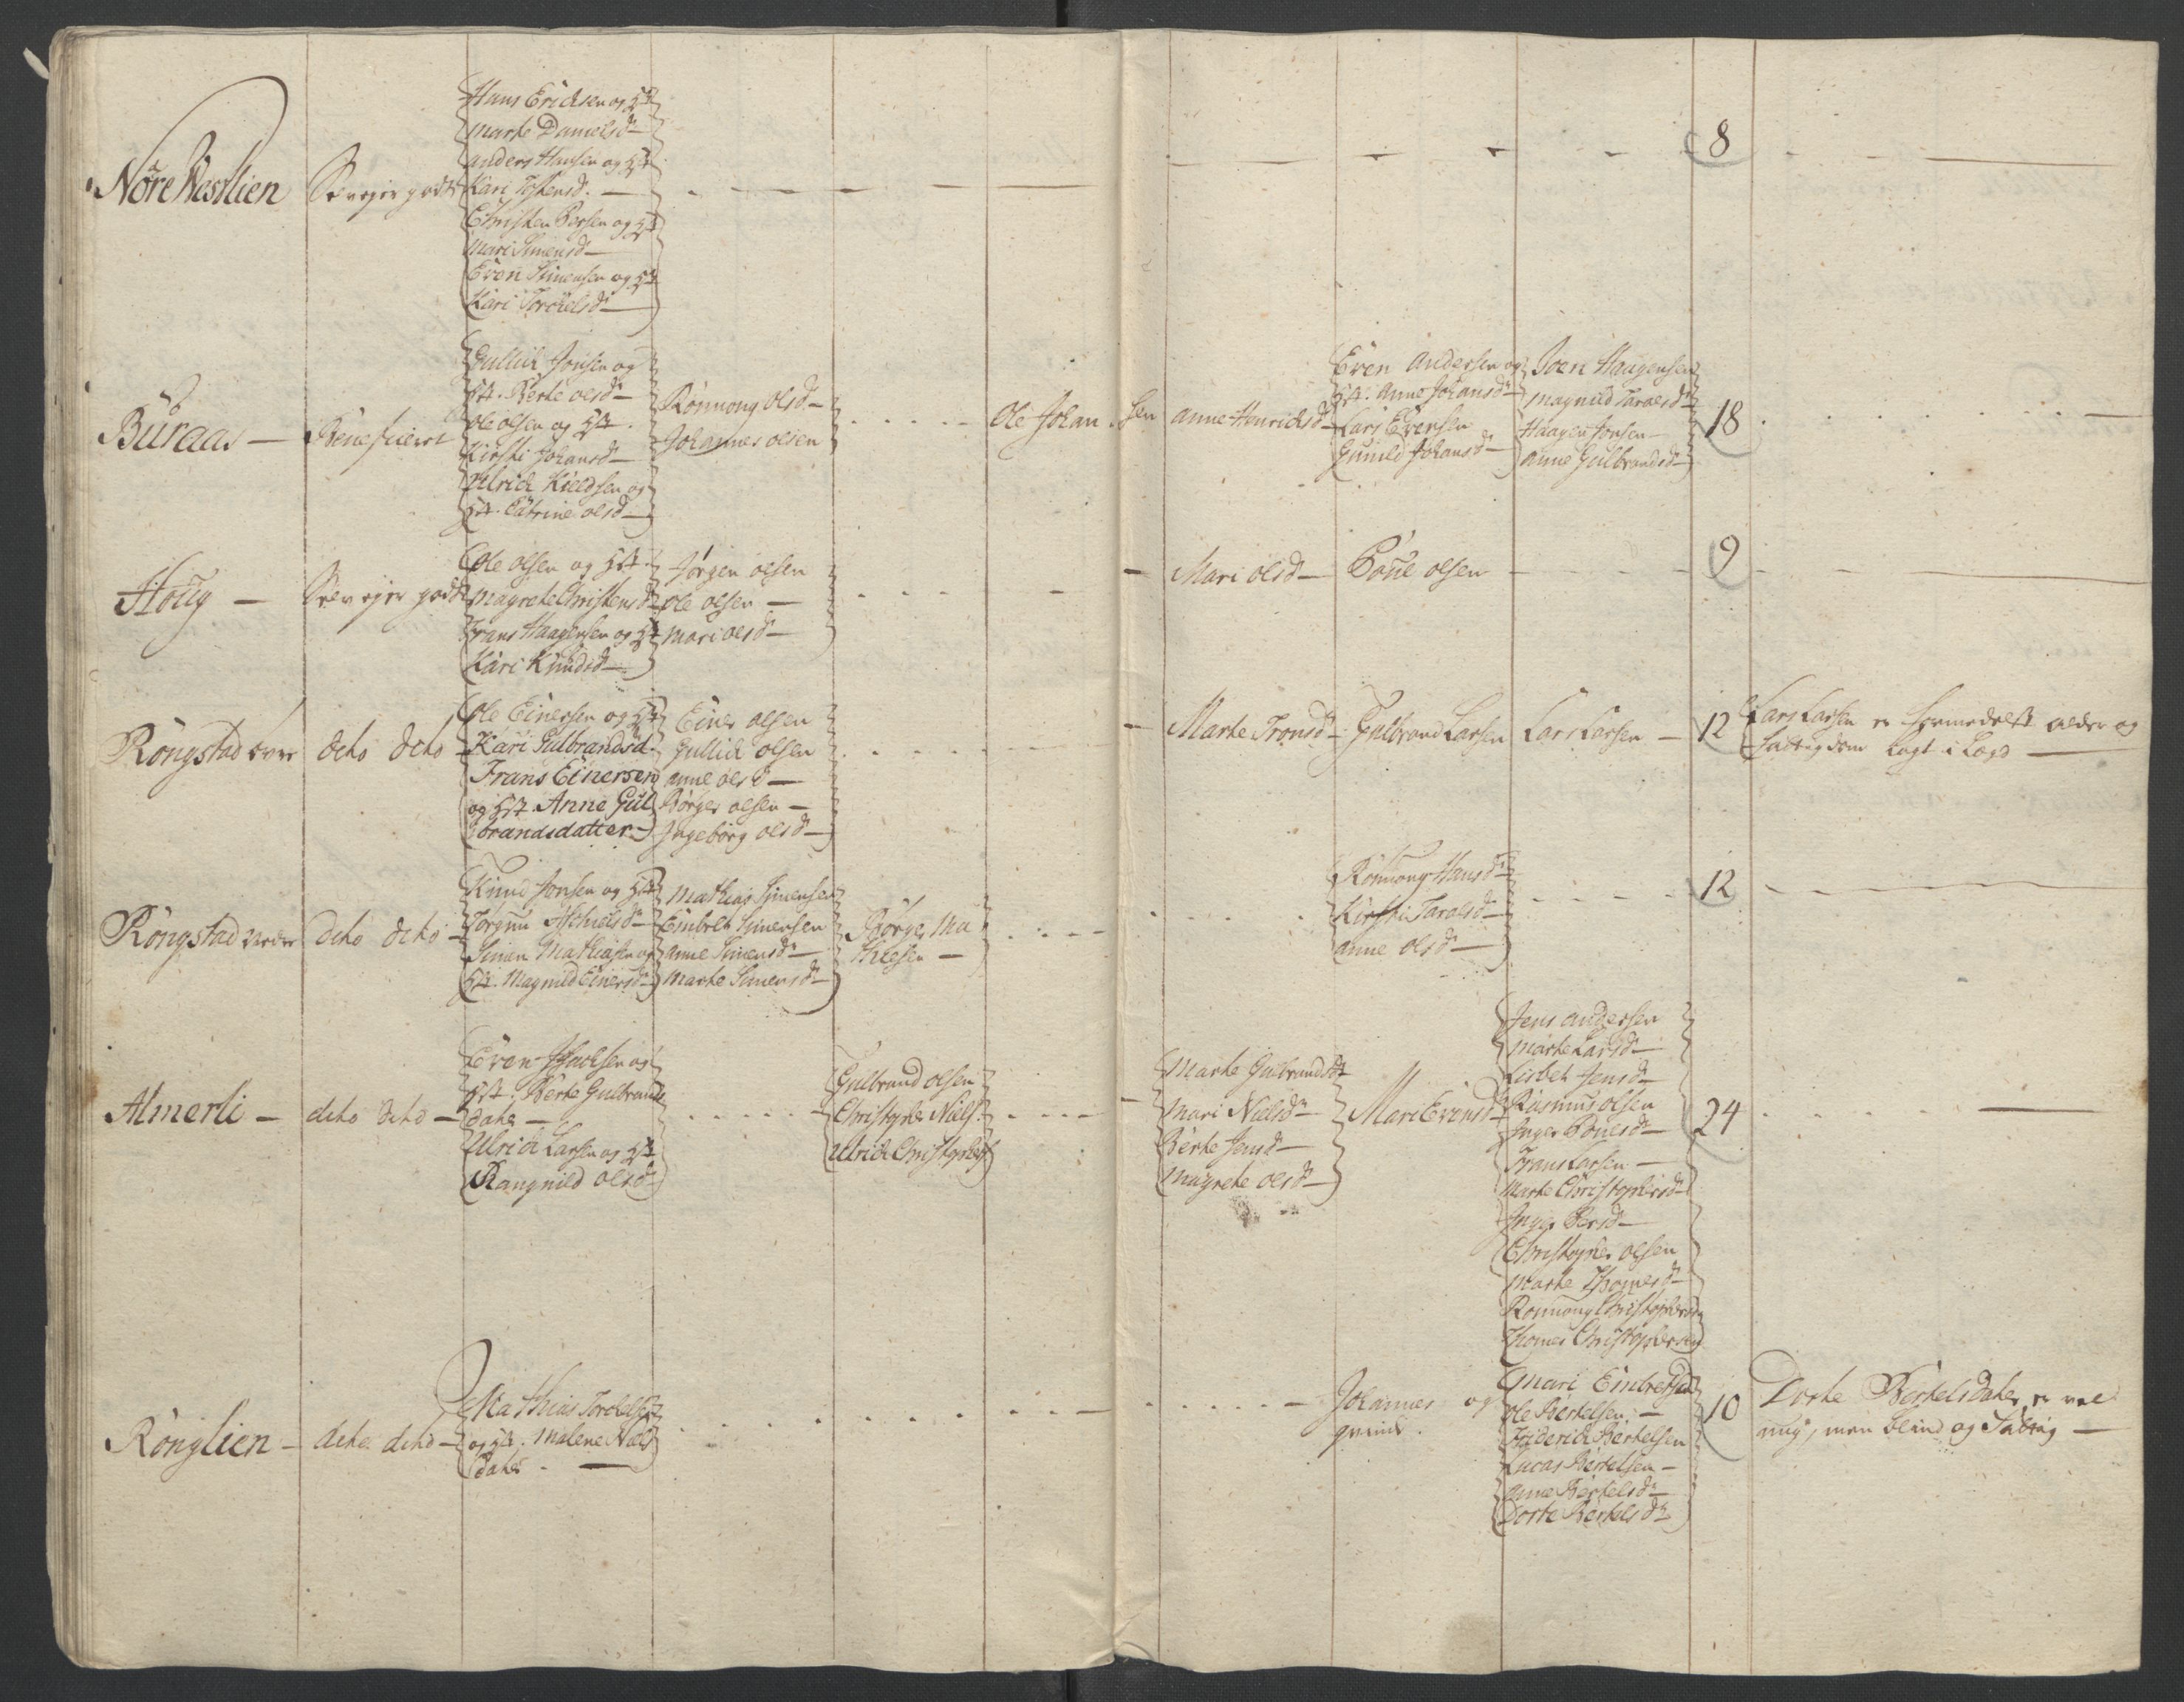 Nöre Westlien
Selvejer godtz
Hans Ericksen og Hst
Marte Danielsdr
anders Hansen og Hst
Kari Tostensd. —
Christen Persen og Hst
Mari Simensd —
Even Simensen og Hst
Kari Torckelsd —
8
Büraas —
Beneficeret
Gullick Jonsen og
Hst. Berte olsd —
ole olsen og Hst.
Kirsti Johansd —
Ulrich Kieldsen og
Hst. Catrine olsd —
Rönnong olsd —
Johannes olsen
Ole Johansen
anne Henrichsd —
Even andersen og
Hst. anne Johansd
Lars Evensen
Gunild Johansd —
Joen Haagensen
Magnild Taralsd
Haagen Jonsen —
anne Gulbrandsd —
18
Houg —
Selvejer godtz
Ole olsen og Hst.
Magrete Christensd
Frans Haagensen og Hst
Kari Knudsd —
Jörgen olsen
ole olsen —
Mari olsd —
Mari olsd —
Poüel olsen
9
Röngstad övre
deto deto
Ole Einersen og Hst
Kari Gulbrandsd.
Frans Einersen
og Hst. Anne Gul
brandsdatter —
Einer olsen
Gullick olsen
anne olsd —
Börger olsen —
Ingeborg olsd —
Marte Tronsd —
Gulbrand Larsen
Lars Larsen —
12
Lars Larsen er formedelst alder og
fattigdom lagt i Lægd —
Röngstad Nedre
deto deto —
Knud Jonsen og Hst
Torgun Aschielsd —
Simen Mathiasen og
Hst. Magnild Einersd —
Mathias Simensen
Embret Simensen
anne Simensd —
Marte Simensd —
Börge Ma
thiesen —
Rönnong Hansd
Kirsti Taralsd —
anne olsd —
12
Almerli —
deto deto —
Even Isacksen og
Hst. Berte Gulbrands
dater —
Ulrich Larsen og Hst
Rangnild olsd
Gulbrand olsen
Christopher Niels.
Ulrich Christophers
Marte Gulbrandsdr
Mari Nielsd —
Berte Jensd —
Magrete olsd —
Mari Evensd —
Jens andersen
Marte Larsd —
Lisbet Jensd —
Rasmus olsen
Inger Pouelsd —
Frans Larsen —
Marte Christophersd
Inger Persd —
Christopher olsen
Marte Thomesd —
Rönnong Christophersd
Thomes Christophersen
24
Rönglien —
deto deto —
Mathias Torckelsen
og Hst. Malene Niels
dater. —
Johannes og
qvinde.
Mari Embretsd
Ole Bertelsen. —
Friderich Bertelsen
Lucas Bertelsen —
anne Bertelsd —
Dorte Bertelsd
10
Dorte Bertelsdater er vel
ung, men blind og fattig —